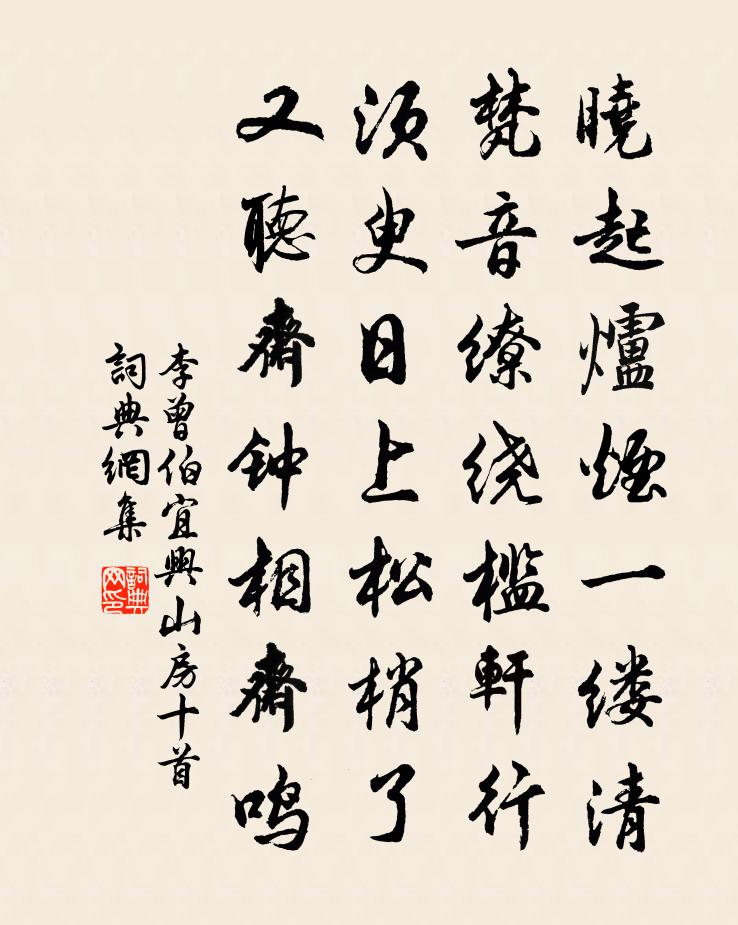 曉起爐煙一缕清
梵音缭绕槛軒行
須臾日上松梢了
又聽齋钟相齋鸣
李曾伯宜興山房十首
詞典網集
詞典网印